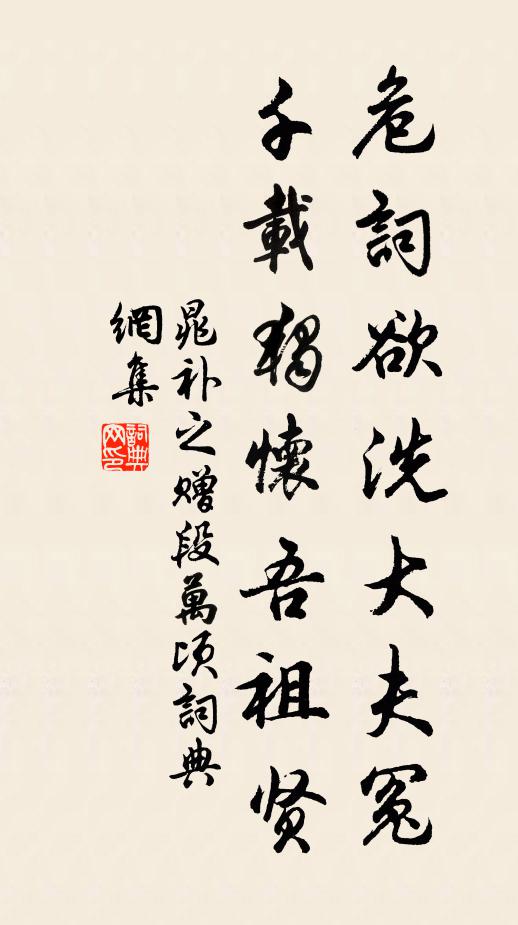 危詞欲洗大夫冤
千載獨懷吾祖贤
晁补之赠段萬頃詞典
網集
詞典网印